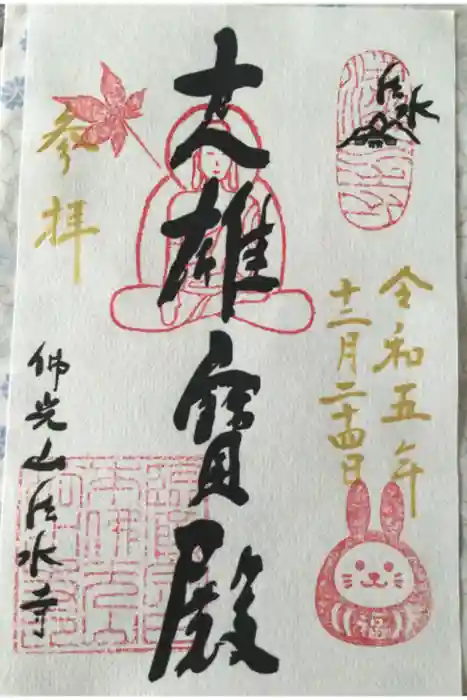 法水
令和五年
十二月二十四日
大雄寶殿
参拝
佛光山法水寺
福